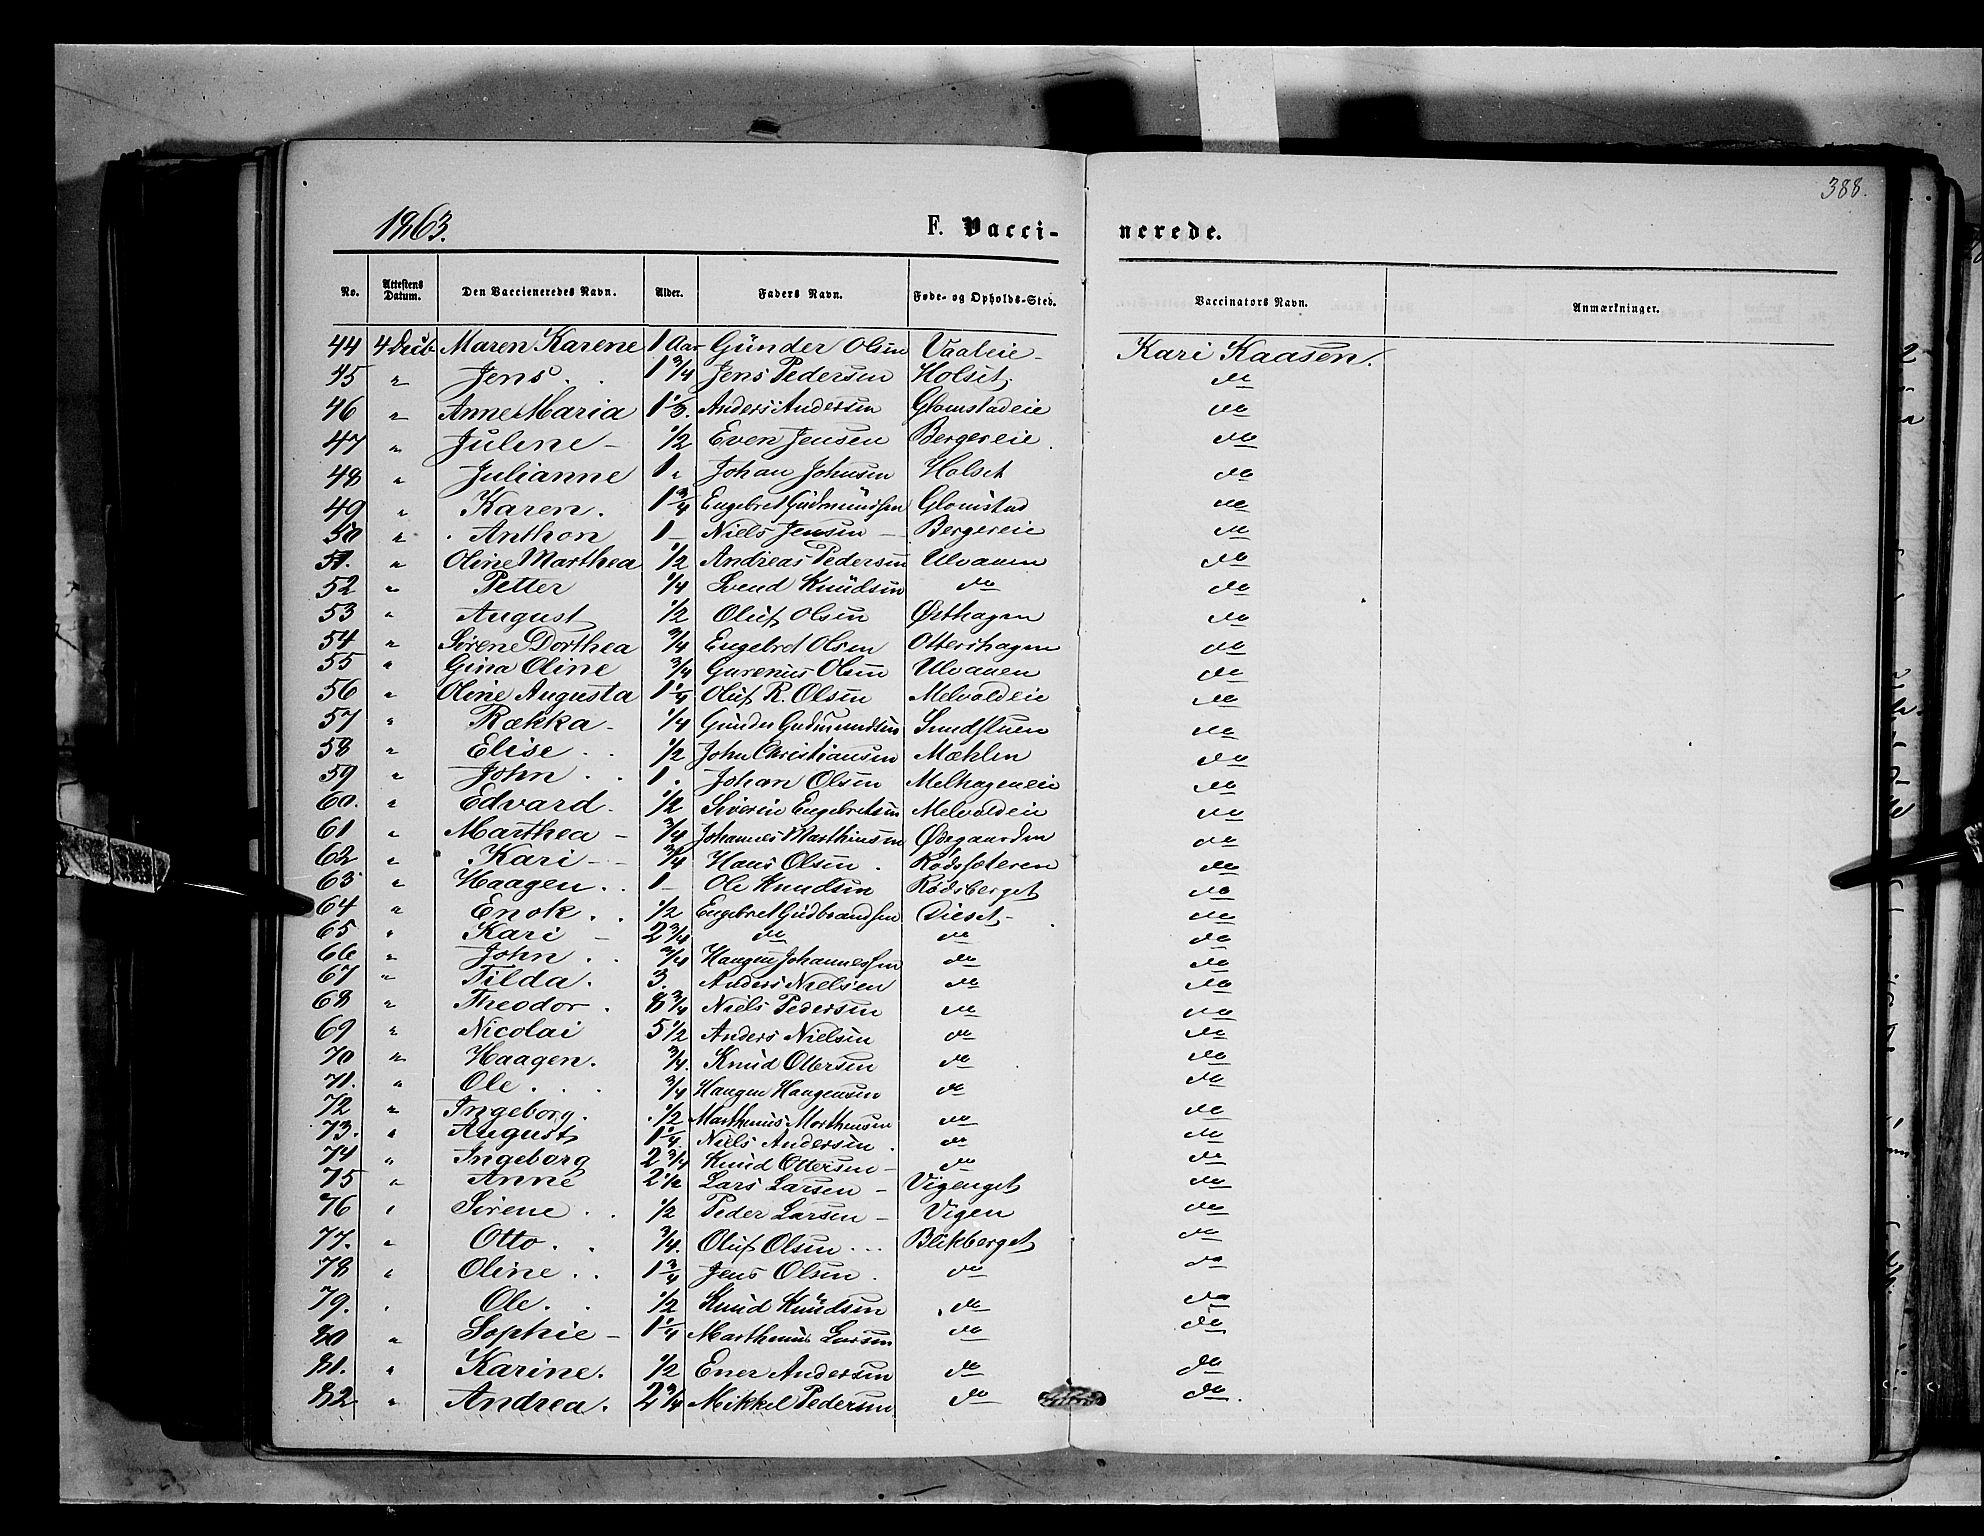 388.
1863. F. Vacci- nerede.
No. Attestens Datum. Den Vaccieneredes Navn. Alder. Faders Navn. Føde- og Opholds-Sted. Vaccinators Navn. Anmærkninger.
44 4 Maren Karene 1 Aar Günder Olsen Vaaleie Kari Kaasen.
45 " Jens. 1 3/4 Jens Pedersen Holset do
46 " Anne Maria 1 1/3. Anders Andersen Glomstadeie do
47 " Juline 1/2 Even Jensen Bergereie do
48 " Julianne 1 " Johan Johnsen Holset do
49 " Karen. 1 3/4 Engebret Gudmündsen Glomstad do
50 " Anthon 1 – Niels Jensen Bergereie do
51. " Oline Marthea 1/2 Andreas Pedersen Ulvaaen do
52 " Petter 1/4 Svend Knüdsen do do
53 " August 1/2 Oluf Olsen Østhagen do
54 " Sørene Dorthea 3/4 Engebret Olsen Ottershagen do
55 " Gina Oline 3/4 Gurenius Olsen Ulvaaen do
56 " Oline Augusta 1 1/4 Oluf R. Olsen Melvoldeie do
57 " Rækka 1/4 Günder Gudmundsen Smedstuen do
58 " Elise 1/2 John Christiansen Mæhlen do
59 " John 1. Johan Olsen Melhageneie do
60. " Edvard. 1/2 Siverin Engebretsen Melvoldeie do
61 " Marthea – 3/4 Johannes Marthinsen Ødegaarden do
62 " Kari 3/4 Hans Olsen. Rødssæteren do
63 " Haagen. 1 – Ole Knudsen Rødsberget do
64 " Enok. 1/2 Engebret Gudbrandsen Dieset do
65 " Kari – 2 3/4 do do do
66 " John. 3/4 Haagen Johannessen do do
67 " Tilda. 3. Anders Nielsen do do
68 " Theodor. 8 3/4 Niels Pedersen do do
69 " Nicolai 5 1/2 Anders Nielsen do do
70 " Haagen. 3/4. Knud Ottersen do do
71. " Ole. 3/4 Haagen Haagensen do do
72 " Ingeborg. 1/2 Marthinus Morthensen do do
73. " August 1 1/4. Niels Andersen. do do
74 " Ingeborg 2 3/4 Knud Ottersen – do do
75 " Anne 2 1/2 Lars Larsen – Vigenget do
76 " Sirene. 1/2 Peder Larsen – Vigen do
77. " Otto. 3/4. Oluf Olsen Blikberget do
78 " Oline. 1 3/4 Jens Olsen. do do
79. " Ole. 1/2 Knud Knüdsen do do
80 " Sophie – 1 1/4 Marthinus Larsen do do
81. " Karine. 1/2 Ener Andersen do do
82 " Andrea. 2 3/4 Mikkel Pedersen do do.